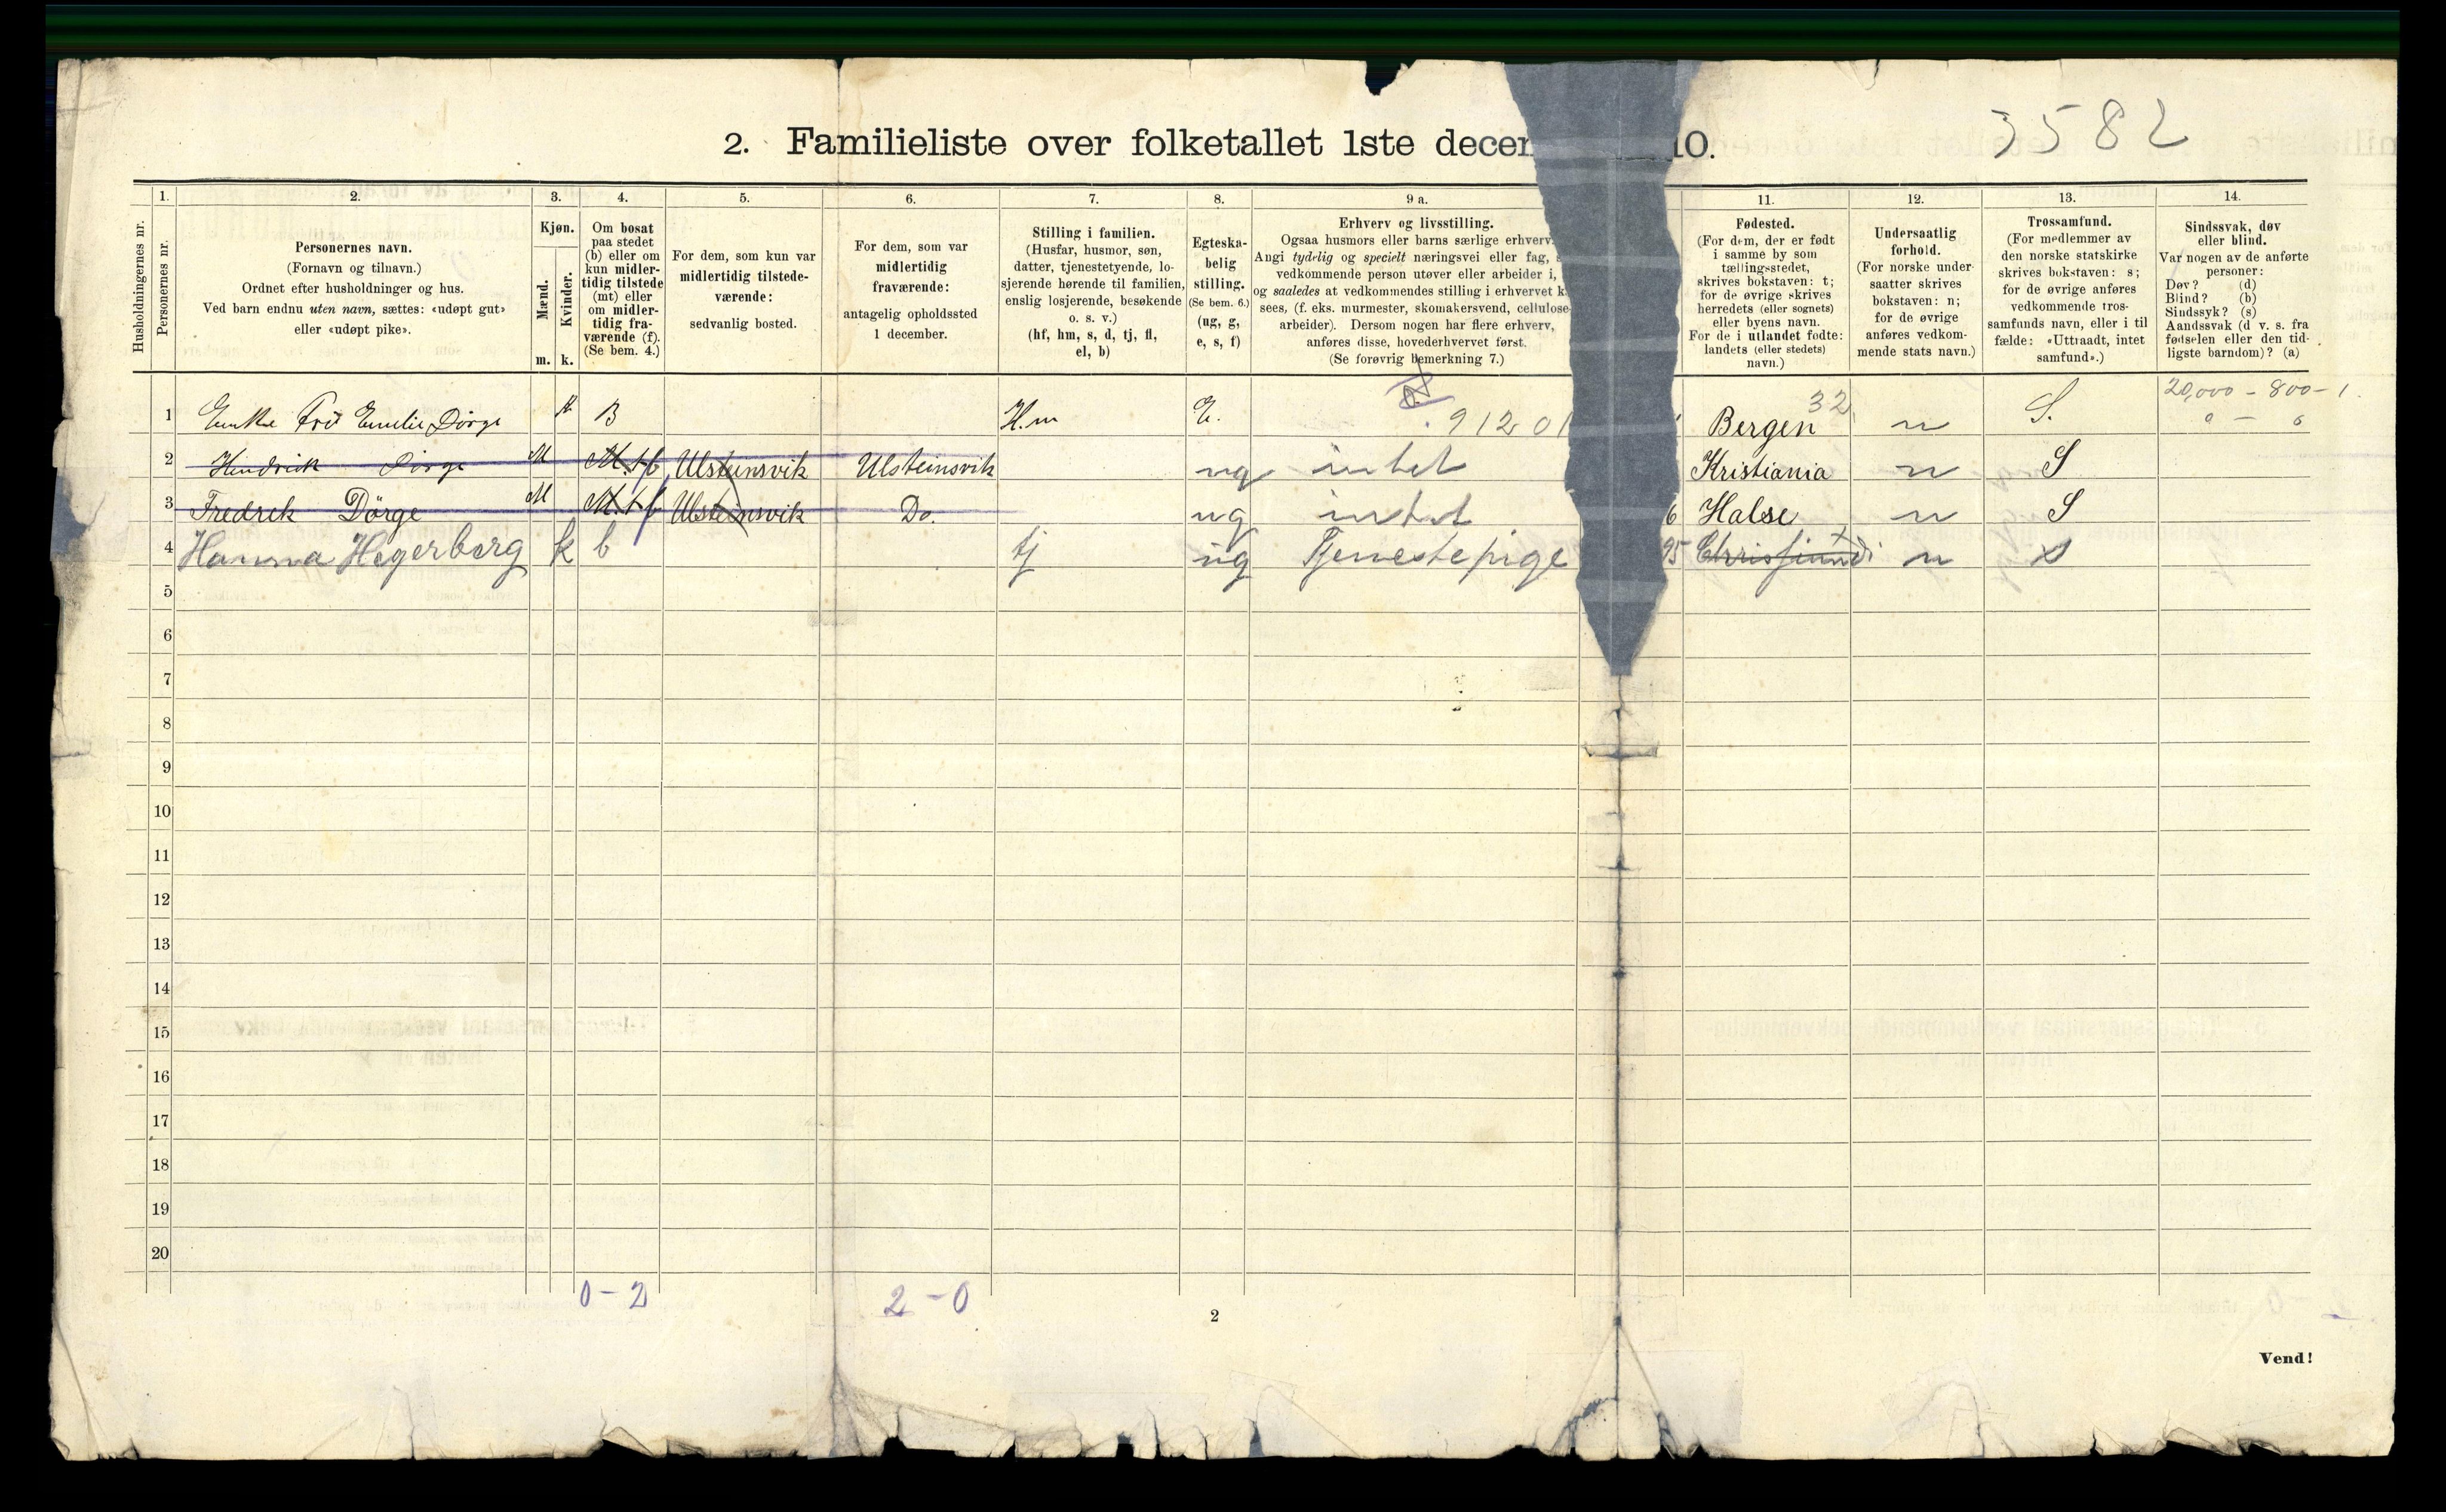 3582
2. Familieliste over folketallet 1ste decem 10.
Husholdningernes nr.
1. Personernes nr.
2.
Personernes navn.
(Fornavn og tilnavn.)
Ordnet efter husholdninger og hus.
Ved barn endnu uten navn, sættes: «udøpt gut»
eller «udøpt pike».
3.
Kjøn.
Mænd.
Kvinder.
m. k.
4.
Om bosat
paa stedet
(b) eller om
kun midler-
tidig tilstede
(mt) eller
om midler-
tidig fra-
værende (f).
(Se bem. 4.)
5.
For dem, som kun var
midlertidig tilstede-
værende:
sedvanlig bosted.
6.
For dem, som var
midlertidig
fraværende:
antagelig opholdssted
1 december.
7.
Stilling i familien.
(Husfar, husmor, søn,
datter, tjenestetyende, lo-
sjerende hørende til familien,
enslig losjerende, besøkende
o. s. v.)
(hf, hm, s, d, tj, fl,
el, b)
8.
Egteska-
belig
stilling.
(Se bem. 6.)
(ug, g,
e, s, f)
9 a.
Erhverv og livsstilling.
Ogsaa husmors eller barns særlige erhverv.
Angi tydelig og specielt næringsvei eller fag, s
vedkommende person utøver eller arbeider i,
og saaledes at vedkommendes stilling i erhvervet k
sees, (f. eks. murmester, skomakersvend, cellulose-
arbeider). Dersom nogen har flere erhverv,
anføres disse, hovederhvervet først.
(Se forøvrig bemerkning 7.)
11.
Fødested.
(For dem, der er født
i samme by som
tællingsstedet,
skrives bokstaven: t;
for de øvrige skrives
herredets (eller sognets)
eller byens navn.
For de i utlandet fødte:
landets (eller stedets)
navn.)
12.
Undersaatlig
forhold.
(For norske under-
saatter skrives
bokstaven: n;
for de øvrige
anføres vedkom-
mende stats navn.)
13.
Trossamfund.
(For medlemmer av
den norske statskirke
skrives bokstaven: s;
for de øvrige anføres
vedkommende tros-
samfunds navn, eller i til
fælde: «Uttraadt, intet
samfund».)
14.
Sindssvak, døv
eller blind.
Var nogen av de anførte
personer:
Døv? (d)
Blind? (b)
Sindssyk? (s)
Aandssvak (d v. s. fra
fødselen eller den tid-
ligste barndom)? (a)
1 Enke Frú Emilie Dörge k B H.m E. 91201 Bergen 32 n S. 20,000 - 800 - 1.
0 - 0
2 Hendrik Dörge M M.t f Ulsteinsvik Ulsteinsvik ug intet Kristiania n S
3 Fredrek Dörge M M.t f Ulsteinsvik Do. ug intet 6 Halse n S
4 Hanna Hegerberg k b tj ug Tjenestepige 95 n s
5
6
7
8
9
10
11
12
13
14
15
16
17
18
19
20
0 - 2 2 - 0
2
Vend!